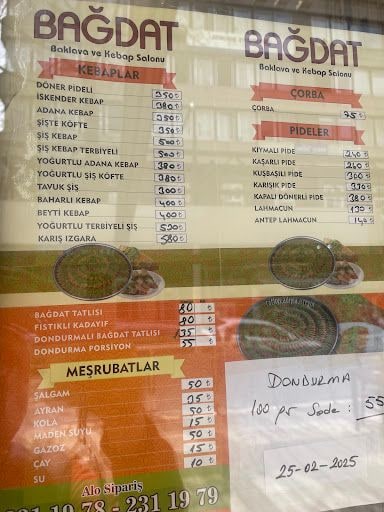 BAĞDAT
Baklava ve Kebap Salonu
KEBAPLAR
DÖNER PİDELİ 350 ₺
İSKENDER KEBAP 380 ₺
ADANA KEBAP 350 ₺
ŞİŞTE KÖFTE 350 ₺
ŞİŞ KEBAP 500 ₺
ŞİŞ KEBAP TERBİYELİ 500 ₺
YOĞURTLU ADANA KEBAP 380 ₺
YOĞURTLU ŞİŞ KÖFTE 380 ₺
TAVUK ŞİŞ 300 ₺
BAHARLI KEBAP 400 ₺
BEYTİ KEBAP 400 ₺
YOĞURTLU TERBİYELİ ŞİŞ 520 ₺
KARIŞ IZGARA 580 ₺
BAĞDAT TATLISI 80 ₺
FISTIKLI KADAYIF 80 ₺
DONDURMALI BAĞDAT TATLISI 135 ₺
DONDURMA PORSİYON 55 ₺
MEŞRUBATLAR
ŞALGAM 50 ₺
AYRAN 35 ₺
KOLA 50 ₺
MADEN SUYU 15 ₺
GAZOZ 50 ₺
ÇAY 15 ₺
SU 10 ₺
Alo Sipariş
231 19 78 - 231 19 79
BAĞDAT
Baklava ve Kebap Salonu
ÇORBA
ÇORBA 75 ₺
PİDELER
KIYMALI PİDE 240 ₺
KAŞARLI PİDE 260 ₺
KUŞBAŞILI PİDE 300 ₺
KARIŞIK PİDE 330 ₺
KAPALI DÖNERLİ PİDE 380 ₺
LAHMACUN 130 ₺
ANTEP LAHMACUN 140 ₺
DONDURMA
100 gr Sade : 55
25-02-2025